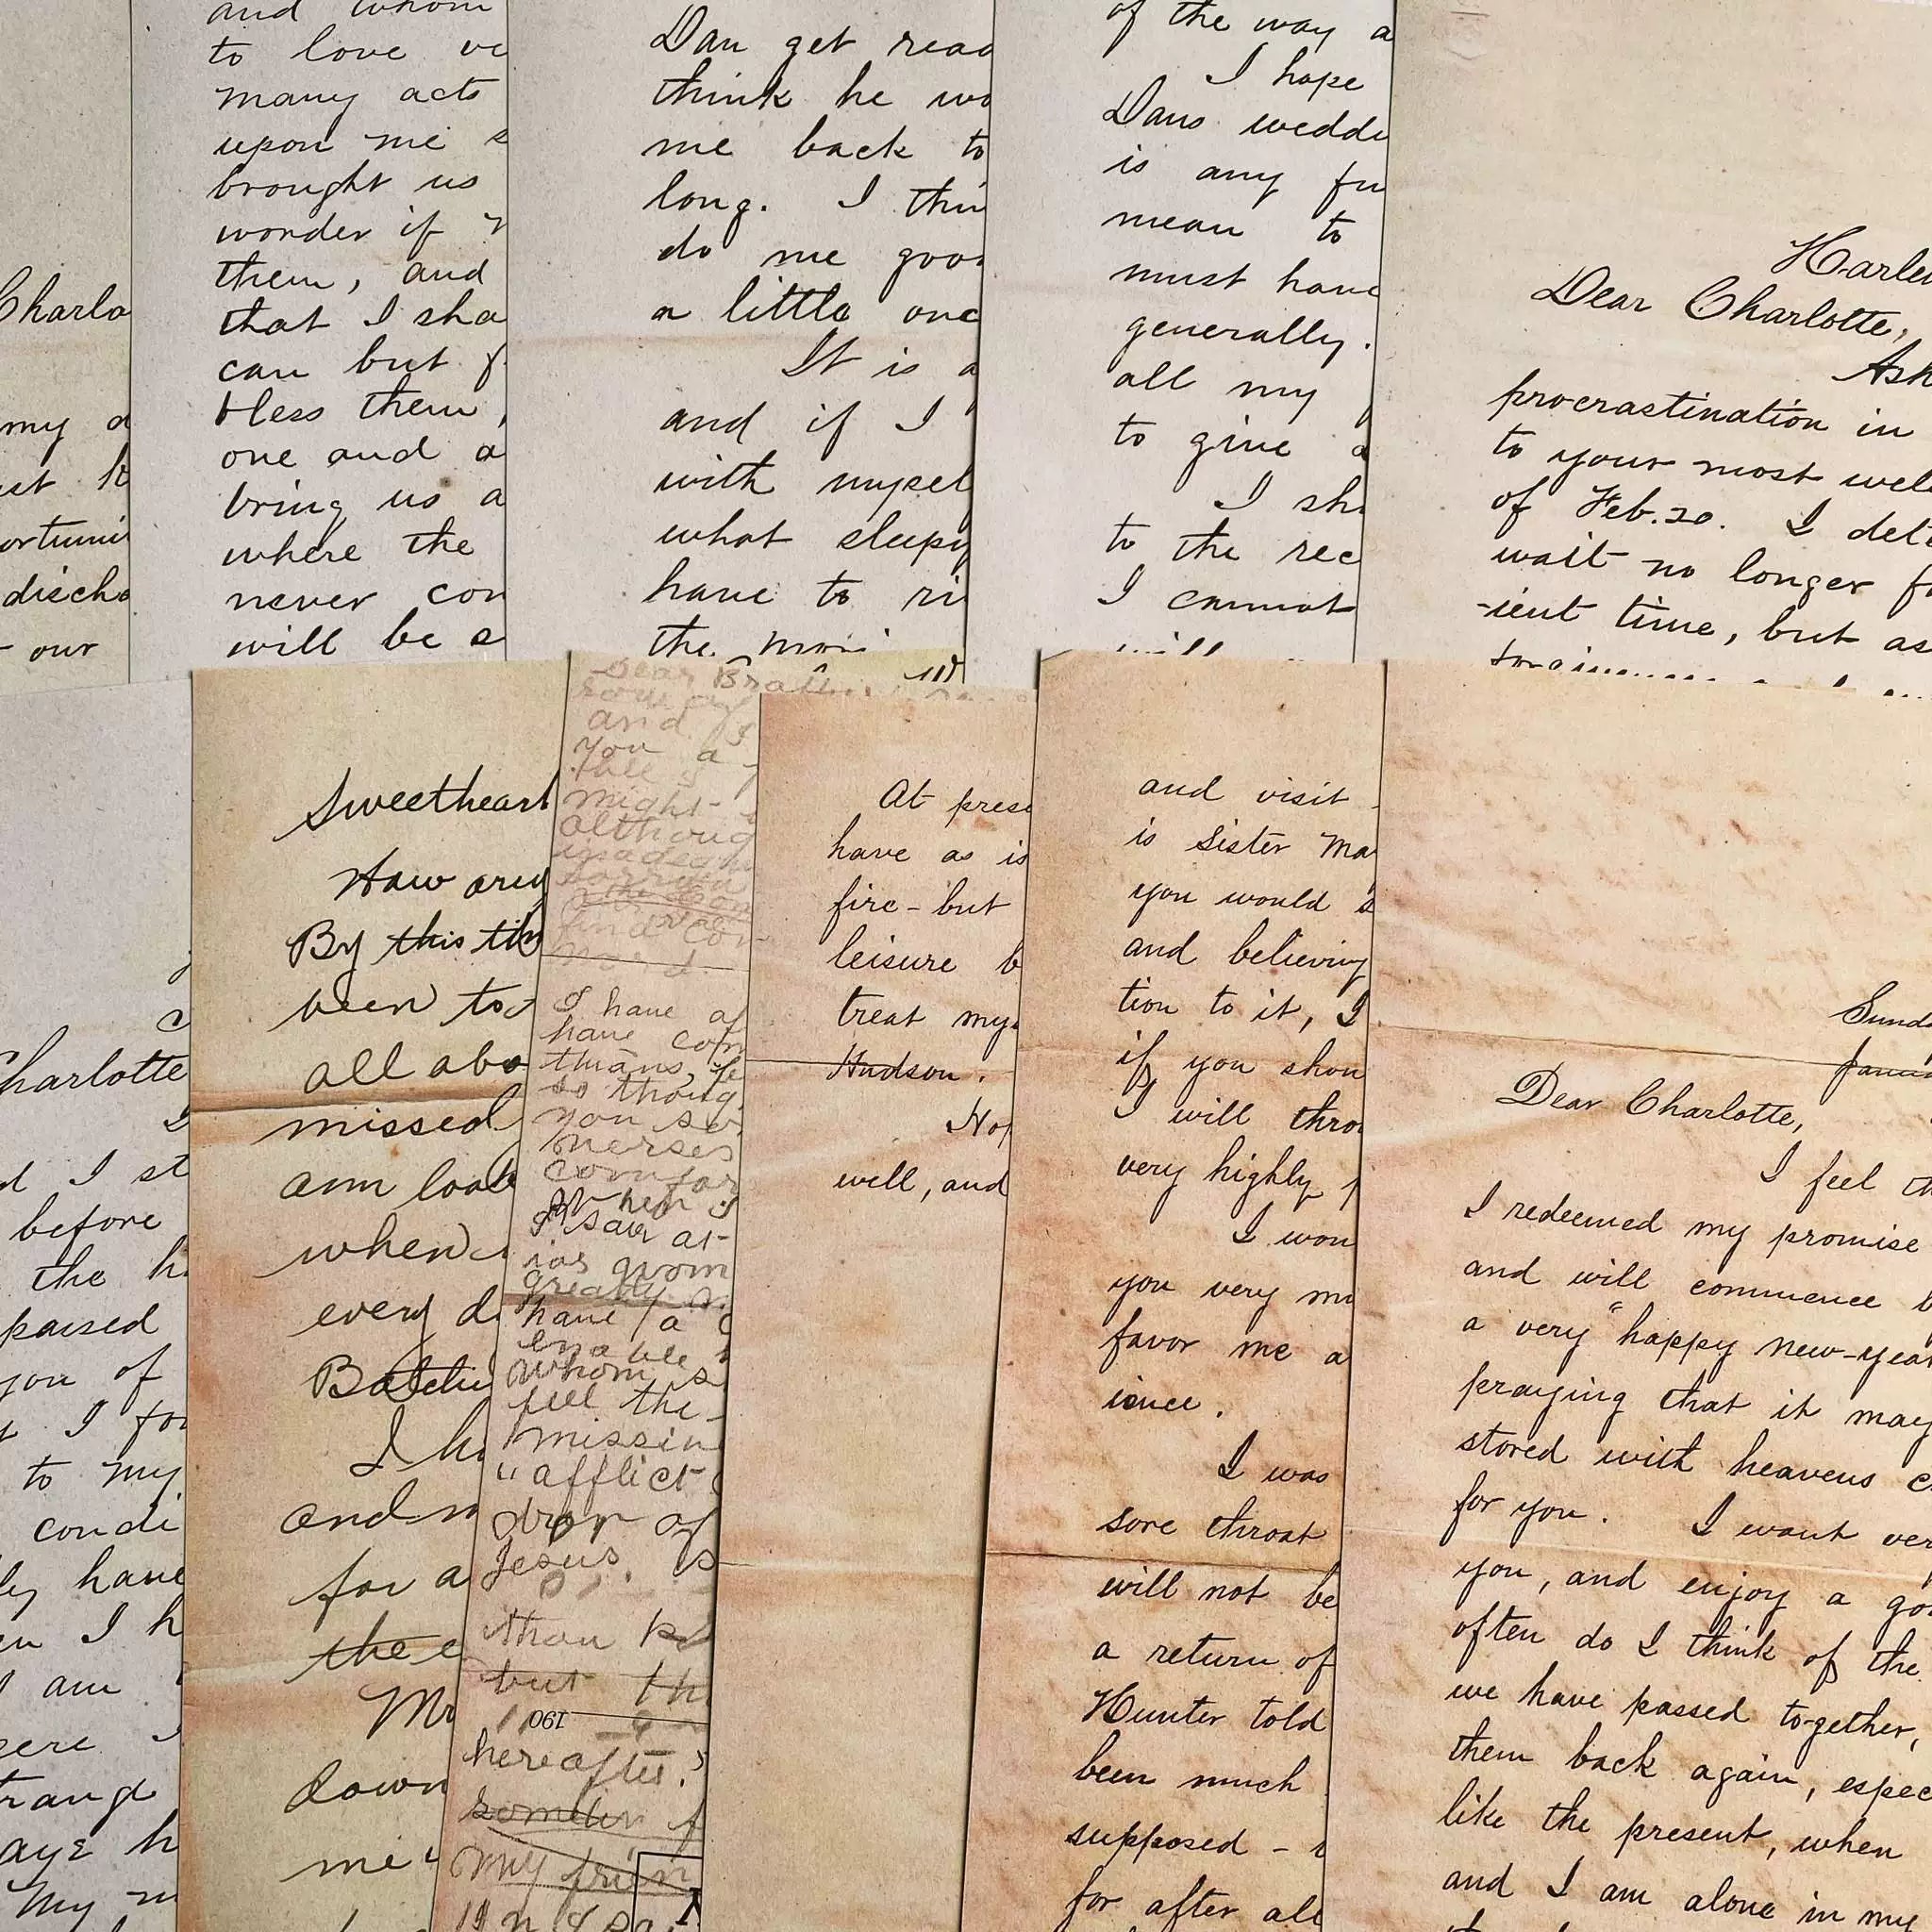 Charlo
my
discha
our
and whom
to love
many acts
upon me
brought us
wonder if
them, and
that I sha
can but
bless them,
one and a
bring us a
where the
never con
will be s
Dan get read
think he wo
me back to
long. I thin
do me goo
a little one
It is a
and if I
with mysel
what sleepy
have to ri
the
of the way a
I hope
Dans weddi
is any fu
mean to
must have
generally.
all my
to give a
I sh
to the rec
I cannot
will
Harle
Dear Charlotte,
Ask
procrastination in
to your most wel
of Feb. 20. I det
wait no longer f
-ient time, but as
Charlotte
I
d I st
before
the h
passed
you of
I for
to my
condi
ly have
I h
I am
trang
My
Sweetheart
How are
By this tim
been to
all abo
missed
am look
when
every d
I h
and
for a
the e
Mr
down
me
Dear
and I
You a
might
althoug
I have
have com
so thoug
you
verses
comfor
When I
I saw at
greatly
have a
enable
whom
feel the
missin
"afflict
Jesus.
than
but th
190
hereafter.
my frien
At prese
have as is
fire - but
leisure b
treat my
Hudson.
No
well, and
and visit
is Sister Ma
you would
and believing
tion to it, I
if you shou
I will thro
very highly
I won
you very mu
favor me a
ience.
I was
sore throat
will not be
a return of
Hunter told
been much
supposed -
for after all
Sund
Janua
Dear Charlotte,
I feel th
I redeemed my promise
and will commence b
a very "happy new-year
praying that it may
stored with heavens c
for you. I want ver
you, and enjoy a go
often do I think of the
we have passed to-gether,
them back again, espec
like the present, when
and I am alone in my